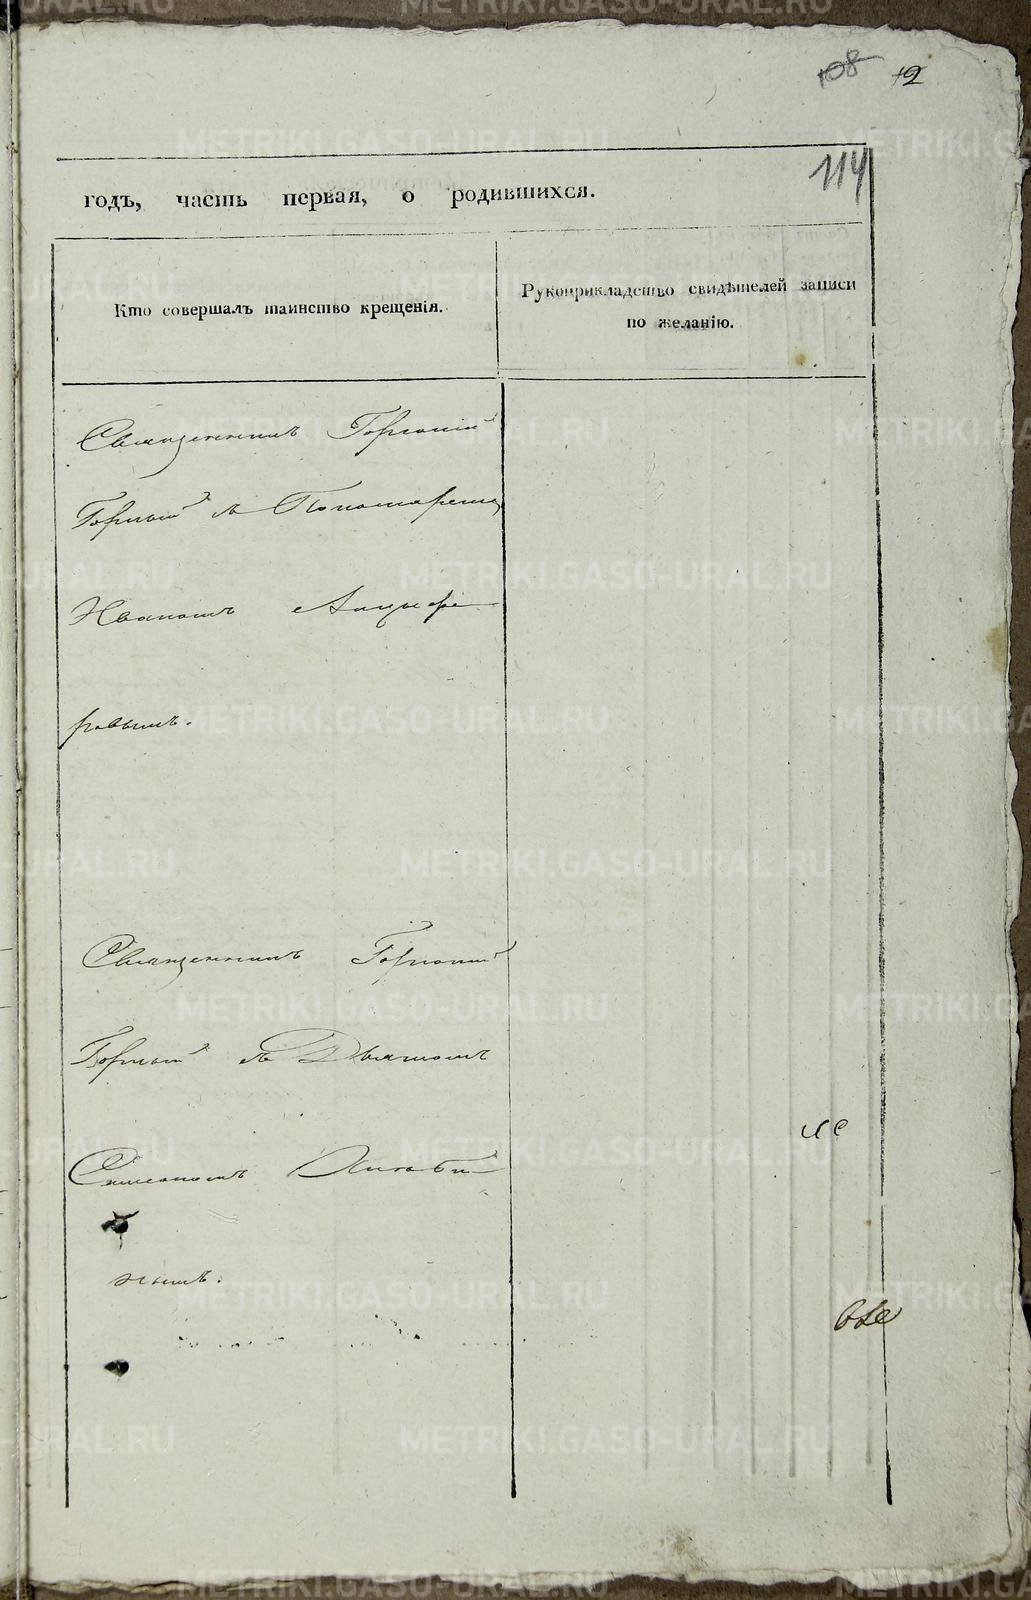 108 12
114
годъ, часть первая, о родившихся.
Кто совершалъ таинство крещенія.
Рукоприкладство свидѣтелей записи
по желанію.
Священникъ Горгоній
Горный съ Пономаремъ
Иваномъ
ровымъ.
Священникъ Горгоній
Горный съ Дьякономъ
Симеономъ
нымъ.
METRIKI.GASO-URAL.RU